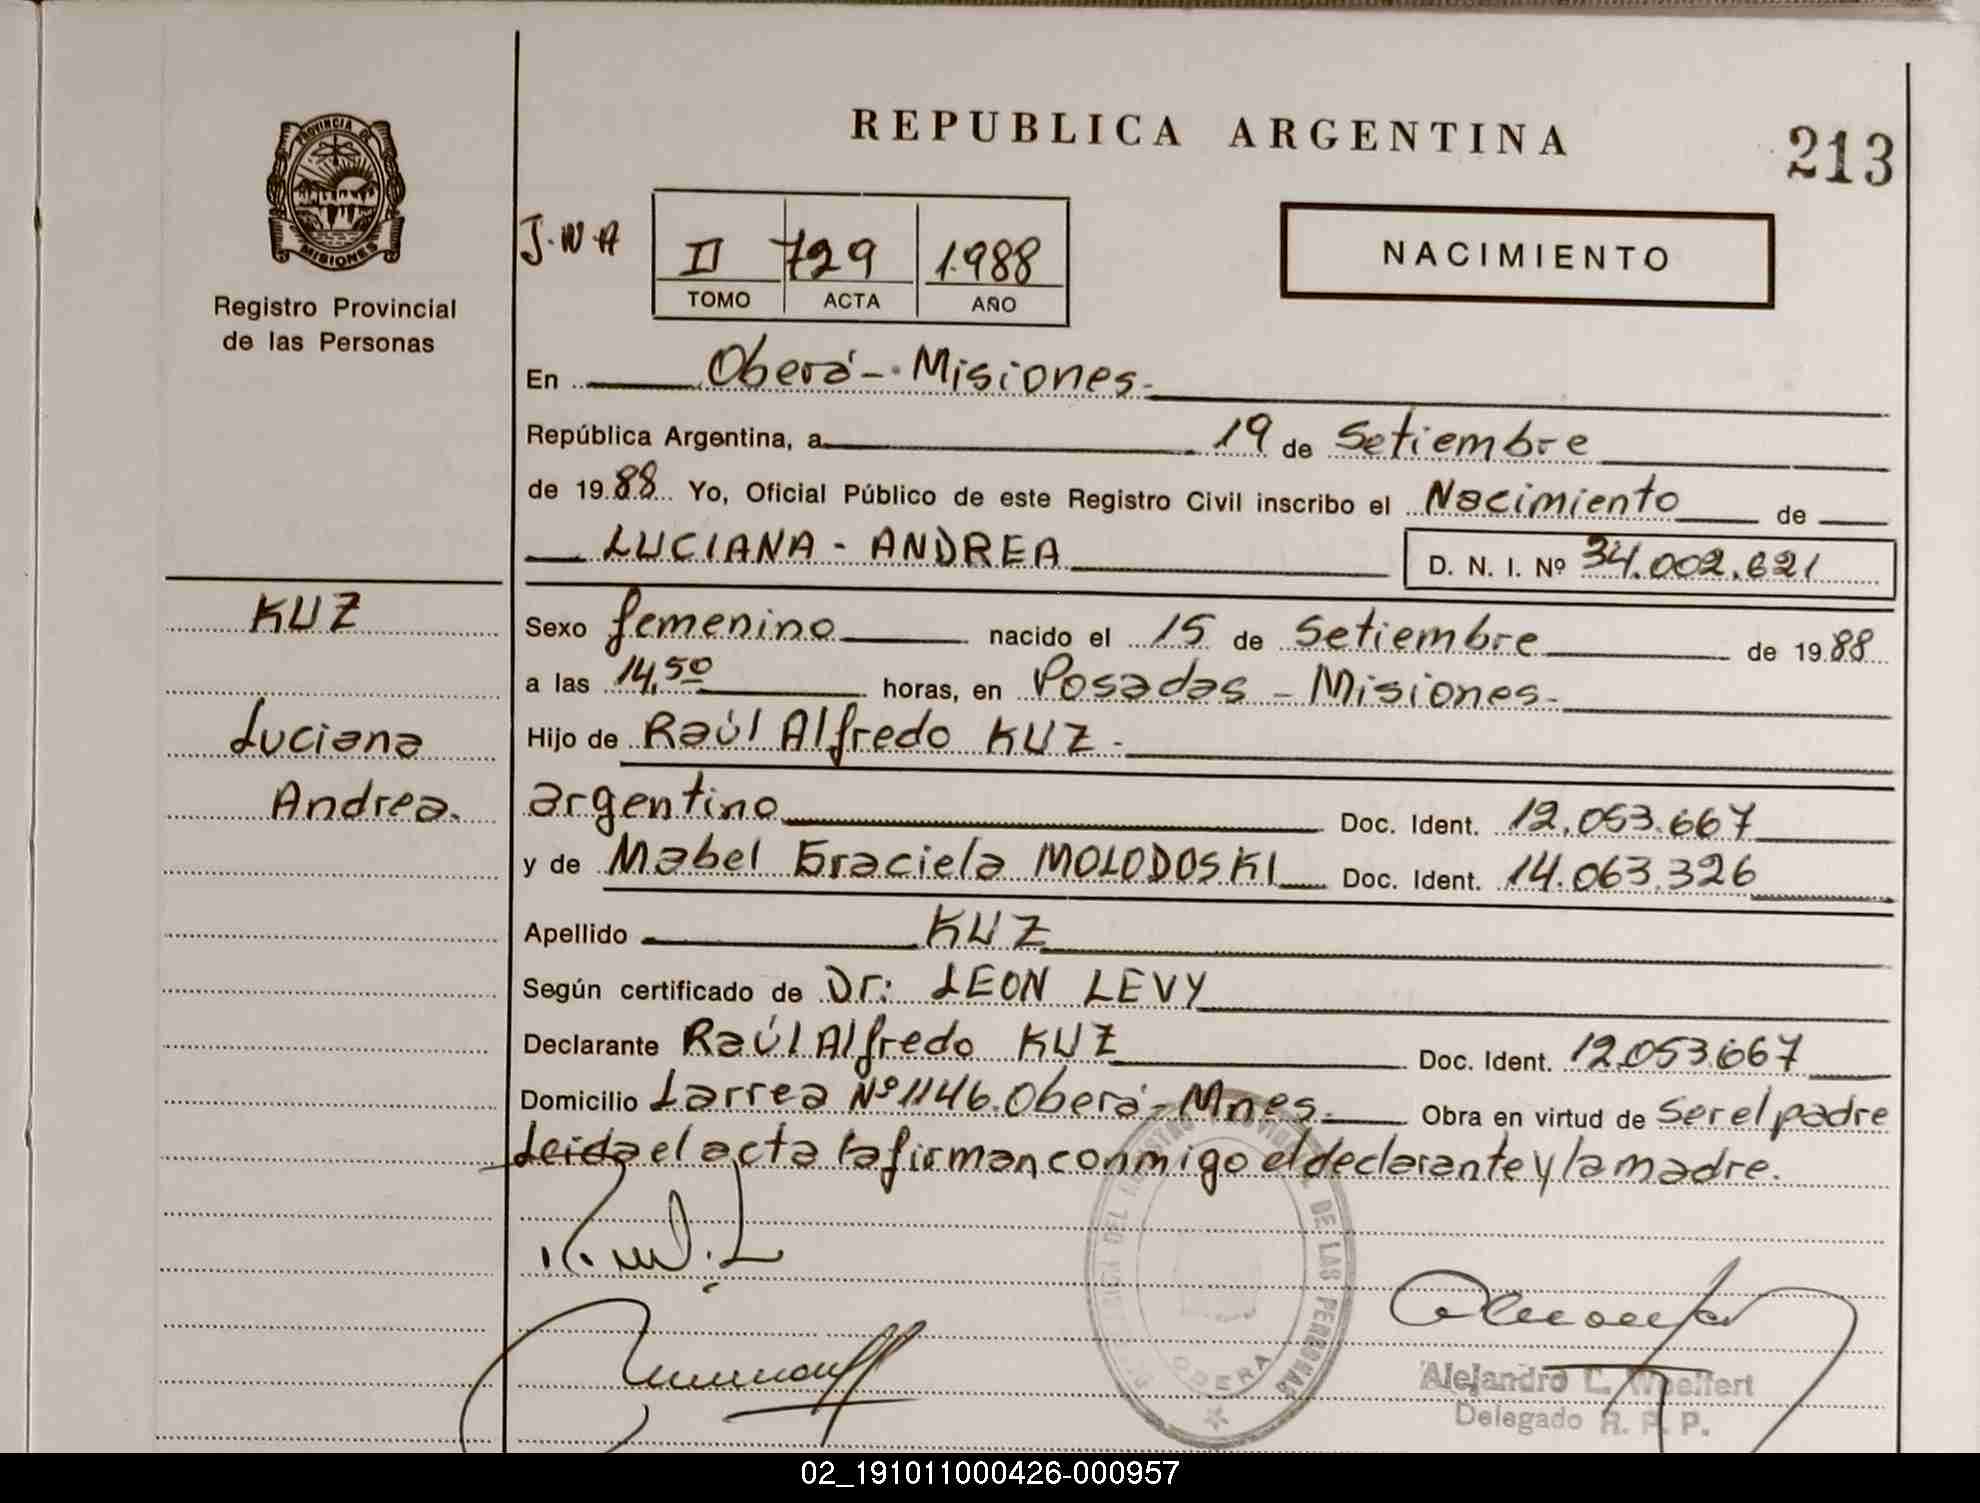 REPUBLICA ARGENTINA
213
PROVINCIA DE
MISIONES
Registro Provincial
de las Personas
J.N.A
II 729 1.988
TOMO ACTA AÑO
NACIMIENTO
En Oberá-Misiones.
República Argentina, a 19 de Setiembre
de 19.88 Yo, Oficial Público de este Registro Civil inscribo el Nacimiento de
LUCIANA - ANDREA D. N. I. Nº 34.002.621
KUZ
Luciana
Andrea.
Sexo femenino nacido el 15 de Setiembre de 19.88
a las 14,50 horas, en Posadas - Misiones-
Hijo de Raúl Alfredo KUZ-
argentino Doc. Ident. 12.053.667
y de Mabel Graciela MOLODOSKI Doc. Ident. 14.063.326
Apellido KUZ
Según certificado de Dr: LEON LEVY
Declarante Raúl Alfredo KUZ Doc. Ident. 12.053.667
Domicilio Larrea Nº 1146. Oberá-Mnes. Obra en virtud de Ser el padre
Leida el acta la firman conmigo el declarante y la madre.
DE LAS PERSONAS
OBERA
Alejandro C. Woeffert
Delegado R. P. P.
02_191011000426-000957